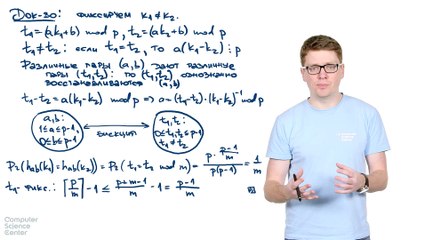 Док-во: фиксируем k₁≠k₂.
t₁=(ak₁+b) mod p, t₂=(ak₂+b) mod p
t₁≠t₂: если t₁=t₂, то a(k₁-k₂)⋮p
Различные пары (a,b) дают различные
пары (t₁,t₂): по (t₁,t₂) однозначно
восстанавливаются (a,b)
t₁-t₂=a(k₁-k₂) mod p ⇒ a=(t₁-t₂)·(k₁-k₂)⁻¹ mod p
a,b:
1≤a≤p-1,
0≤b≤p-1
биекция
t₁,t₂:
0≤t₁,t₂≤p-1
t₁≠t₂
Pr(hab(k₁)=hab(k₂))=Pr(t₁=t₂ mod m)= p·(p-1)/m / p(p-1) = 1/m
t₁-фикс.: ⌈p/m⌉-1 ≤ (p+m-1)/m -1 = (p-1)/m
Computer
Science
Center